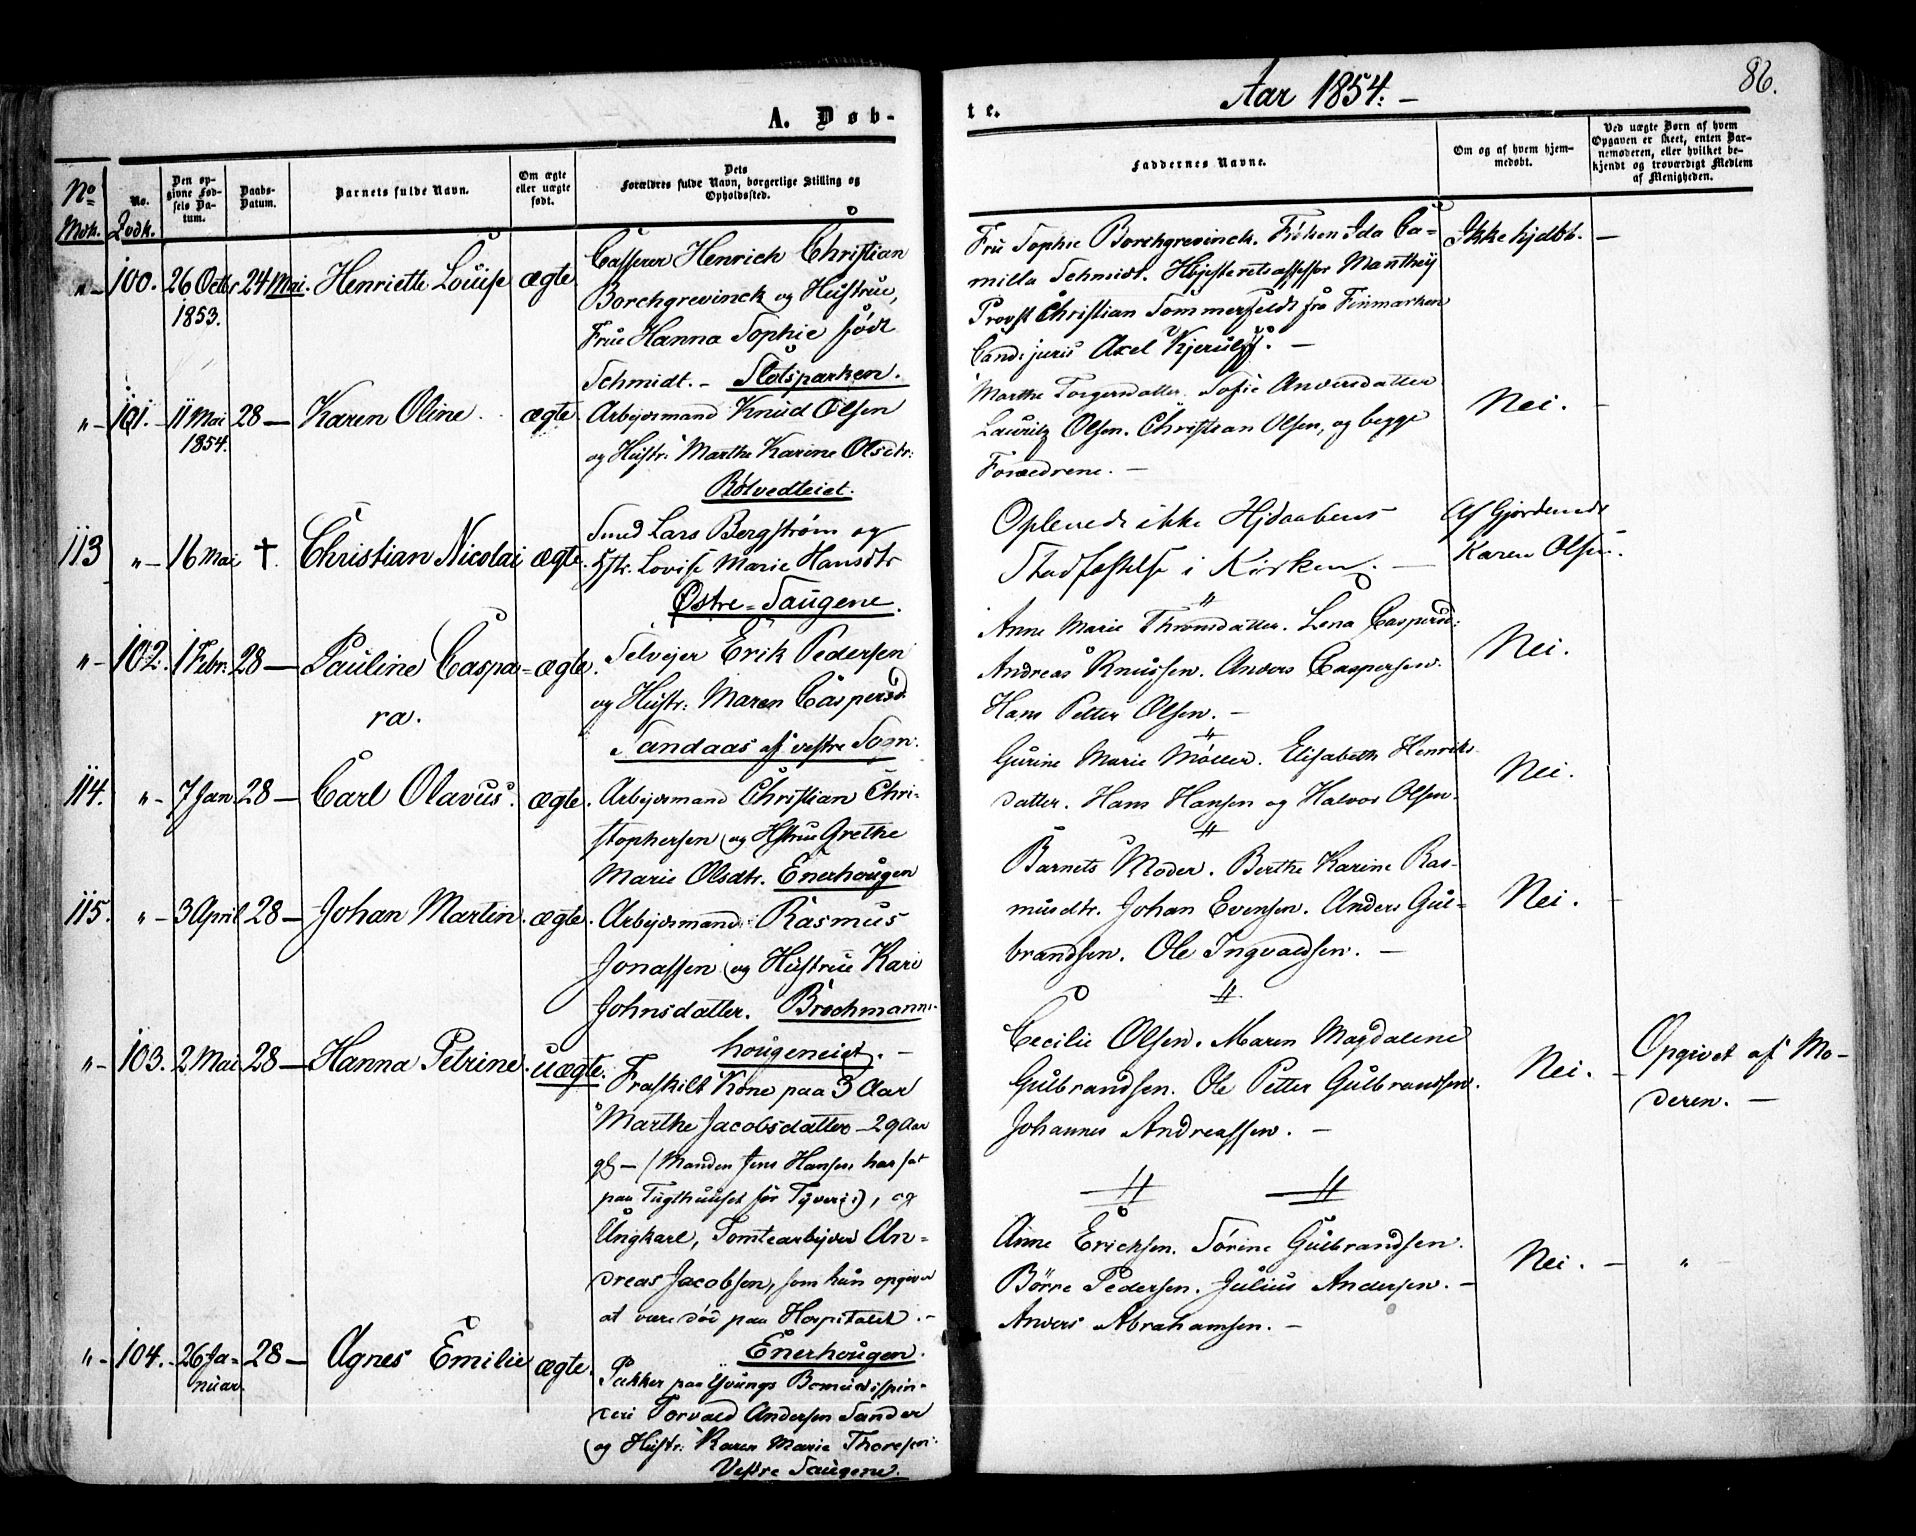 A. Døb-
No Mdk.
No. Qvdk.
Den opgivne Fødsels Datum.
Daabs-Datum.
Barnets fulde Navn.
Om ægte eller uægte født.
Dets Forældres fulde Navn, borgerlige Stilling og Opholdssted.
te.
Aar 1854.
86.
Faddernes Navne.
Om og af hvem hjemmedøbt.
Ved uægte Børn af hvem Opgaven er skeet, enten Barnemoderen, eller hvilket bekjendt og troværdigt Medlem af Menigheden.
"- 100. 26 Octbr 1853. 24 Mai. Henriette Louise ægte
Casserer Henrich Christian
Borchgrevinck og Hustrue,
Frue Hanna Sophie født
Schmidt. - Slotsparken.
Fru Sophie Borchgrevinck. Frøken Ida Ca=
milla Schmidt. Højesteretsassessor Manthey
Provst Christian Sommerfeldt fra Finmarken
Cand: juris Axel Kjerulf. -
Ikke hjdbt. -
"- 101. 11 Mai 1854. 28 - Karen Oline. ægte
Arbejdsmand Knud Olsen
og Hustr: Marthe Karine Olsdtr:
Bølvedleiet.
Marthe Torgersdatter. Sofie Andersdatter
Lauritz Olsen. Christian Olsen, og begge
Foræedrene. -
Nei. -
113 "- 16 Mai †. Christian Nicolai ægte.
Smed Lars Bergstrøm og
Hstr. Lovise Marie Hansdtr
Østre=Saugene.
Oplevede ikke Hjdaabens
Stadfæstelse i Kirken. -
Af Gjordemdr
Karen Olsen.
"- 102. 1 Febr. 28 - Pauline Caspa=
ra. ægte.
Selvejer Erik Pedersen
og Hustr: Maren Caspersd.
Sandaas af vestre Som.
Anne Marie Thronsdatter. Lena Caspersd:
Andreas Knussen. Anders Caspersen.
Hans Petter Olsen. -
Nei.
114. "- 7 Jan. 28 - Carl Olavus. ægte.
Arbejdsmand Christian Chri-
stophersen og Hstrue Grethe
Marie Olsdtr. Enerhougen
Gurine Marie Møller. Elisabeth Henriks-
datter. Hans Hansen og Halvor Olsen.
Nei.
115. "- 3 April 28 - Johan Martin. ægte.
Arbejdsmand Rasmus
Jonassen og Hustrue Kari
Johnsdatter. Brochmanns-
hougeneiet. -
Barnets Moder. Berthe Karine Ras-
musdtr. Johan Evensen. Anders Gul=
brandsen. Ole Ingvaldsen. -
Nei.
"- 103. 2 Mai 28 - Hanna Petrine. uægte.
Fraskilt Kone paa 3 Aar
Marthe Jacobsdatter - 29 Aar
gl - (Manden Jens Hansen har sat
paa Tugthuuset for Tyveri), og
Ungkarl, Tomtearbejder An=
dreas Jacobsen, som hun opgiver
at være død paa Hospitalet. -
Enerhougen.
Cecilie Olsen. Maren Magdalene
Gulbrandsen. Ole Petter Gulbrandsen.
Johannes Andreassen. -
Nei. -
Opgivet af Mo-
deren. -
"- 104. 26 Ja=
nuar. 28 - Agnes Emilie ægte.
Pakker paa Spinderi
Torvald Andersen Sander
og Hustr: Karen Marie Thoresen:
Vestre Saugene.
Anne Ericksen. Sørine Gulbrandsen.
Børre Pedersen. Julius Andersen. -
Anders Abrahamsen. -
Nei. - "